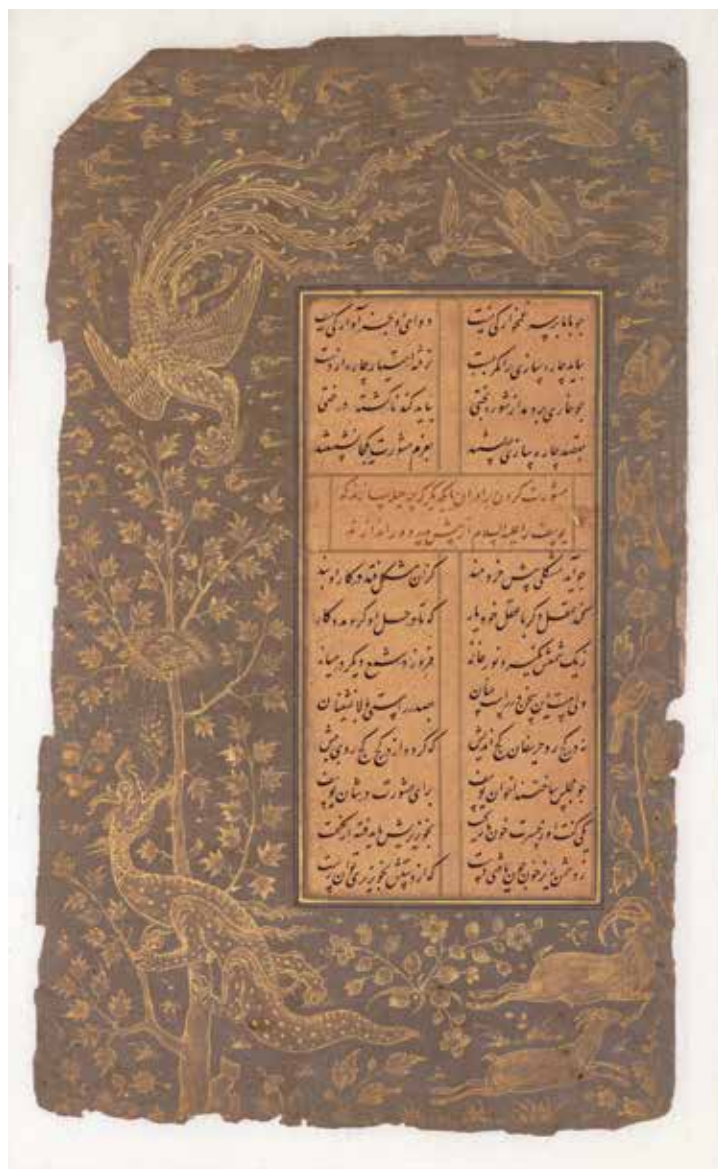 چو با ما بر سر غمخوارگی نیست دوای او بجز آوارگی نیست
بباید چاره سازی را کمر بست نرفته اختیار چاره از دست
چو خاری بر دمد از شوره بختی بباید کند ناگشته درختی
بقصد چاره سازی بعزم مشورت یکجا نشستند
مشورت کردن برادران با یکدیگر که چه حیله سازند که
یوسف را علیه السلام از پیش پدر دور اندازند
چو آید مشکلی پیش خردمند کزان مشکل فتد در کار او بند
کند عقل دگر با عقل خود یار که تا در حل او گردد مددکار
ز یک شمعش نگیرد نور خانه فروزد شمع دیگر در میانه
ولی هست این سخن در راست بینان بصدر راستی بالا نشینان
نه در کج رو حریفان کج اندیش که گردد از دو کج کج روی بیش
چو مجلس ساختند اخوان یوسف برای مشورت در شان یوسف
یکی گفت او ز حسرت خون ما ریخت بخونریزیش باید فتنه انگیخت
ز دشمن که از دستش بخونریزی توان رست